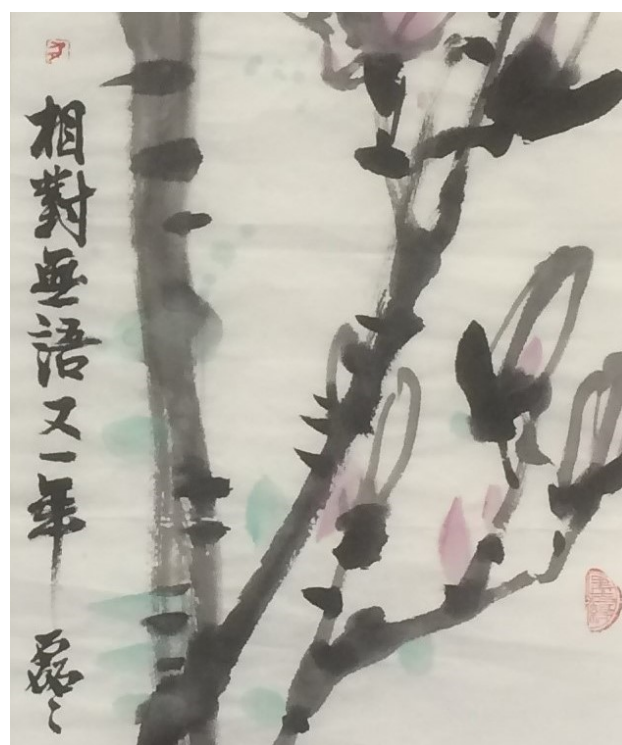 相對無語又一年